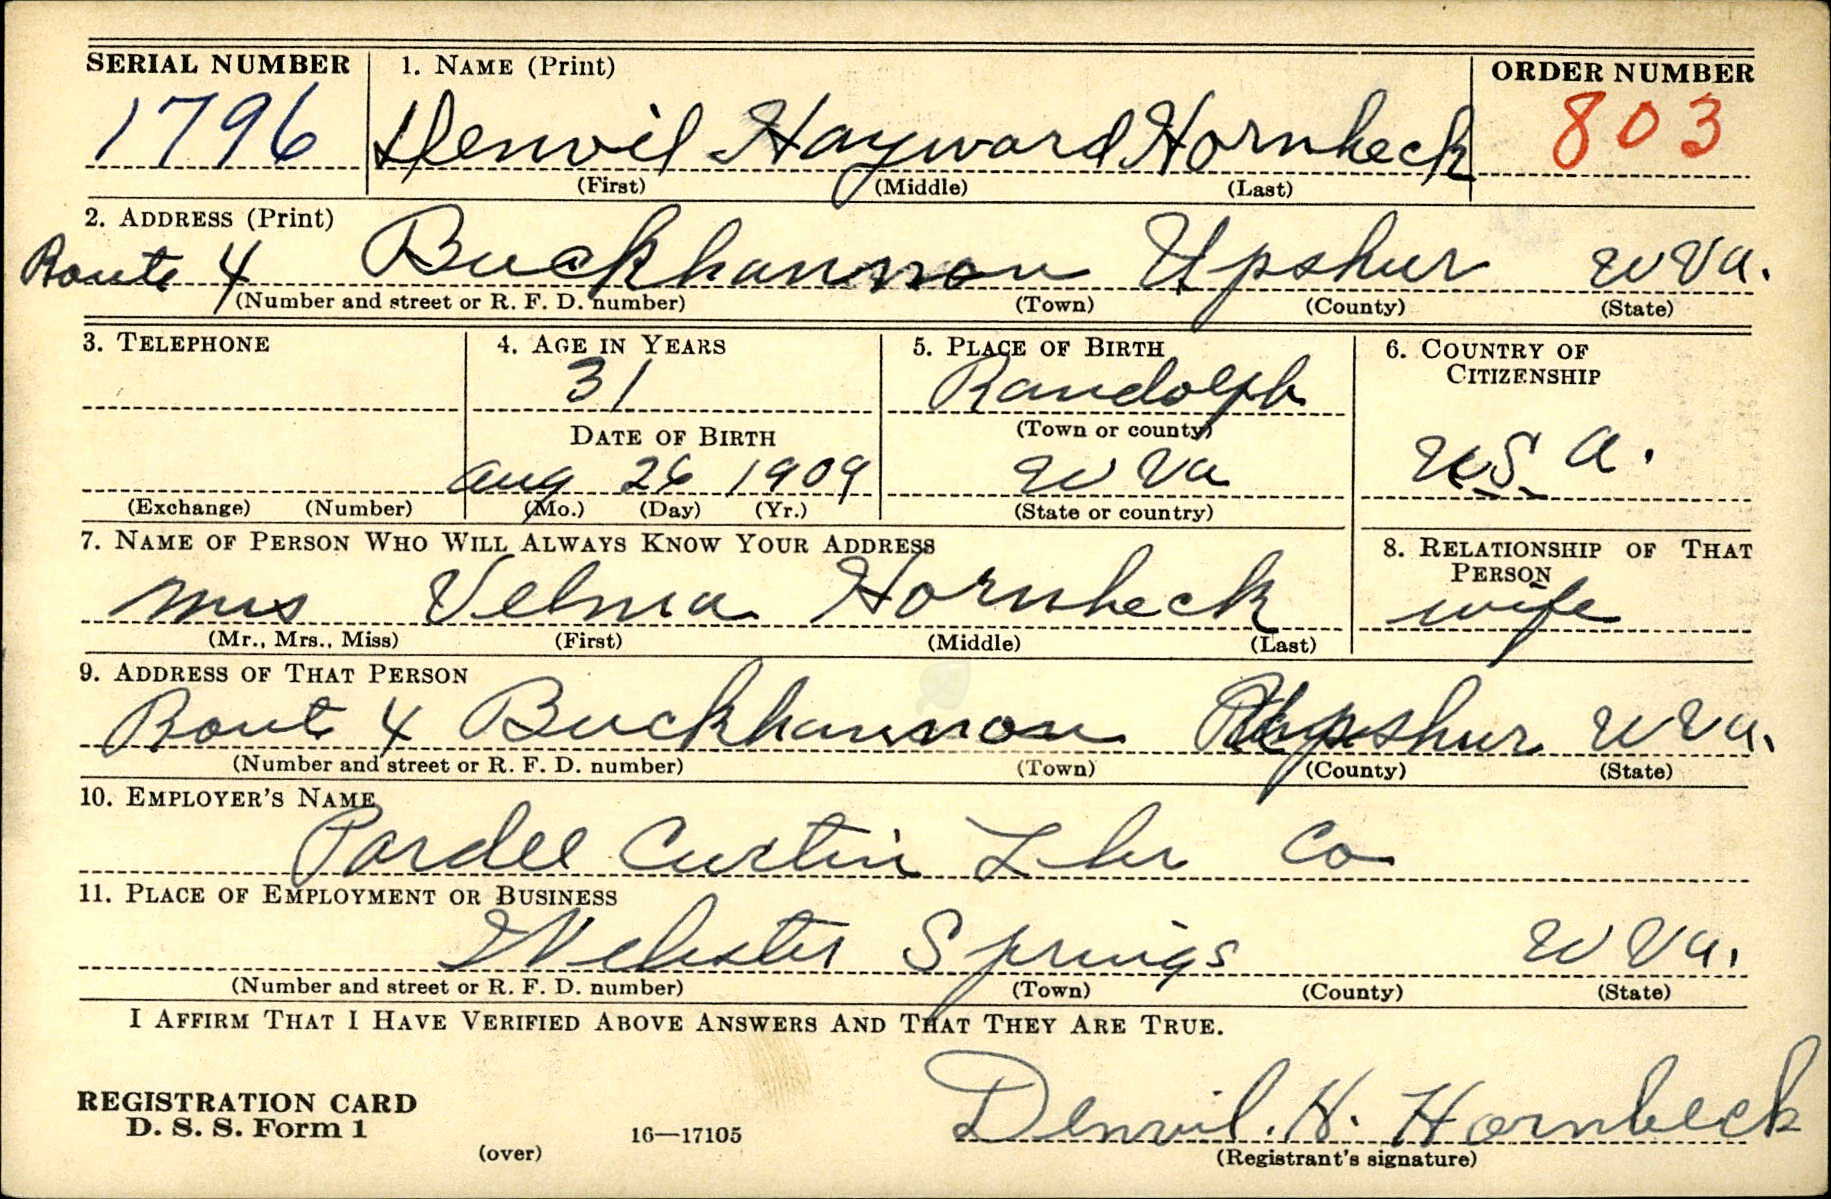 SERIAL NUMBER 1. NAME (Print) ORDER NUMBER
1796 Denvil Hayward Hornbeck 803
(First) (Middle) (Last)
2. ADDRESS (Print)
Route 4 Buckhannon Upshur W Va.
(Number and street or R. F. D. number) (Town) (County) (State)
3. TELEPHONE 4. AGE IN YEARS 5. PLACE OF BIRTH 6. COUNTRY OF CITIZENSHIP
31 Randolph
DATE OF BIRTH (Town or county)
Aug 26 1909 W Va U.S.A.
(Exchange) (Number) (Mo.) (Day) (Yr.) (State or country)
7. NAME OF PERSON WHO WILL ALWAYS KNOW YOUR ADDRESS 8. RELATIONSHIP OF THAT PERSON
Mrs Velma Hornbeck wife
(Mr., Mrs., Miss) (First) (Middle) (Last)
9. ADDRESS OF THAT PERSON
Route 4 Buckhannon Upshur W Va.
(Number and street or R. F. D. number) (Town) (County) (State)
10. EMPLOYER'S NAME
Pardee Curtin Lbr Co
11. PLACE OF EMPLOYMENT OR BUSINESS
Webster Springs W Va.
(Number and street or R. F. D. number) (Town) (County) (State)
I AFFIRM THAT I HAVE VERIFIED ABOVE ANSWERS AND THAT THEY ARE TRUE.
REGISTRATION CARD
D. S. S. Form 1 16—17105 Denvil. H. Hornbeck
(over) (Registrant's signature)